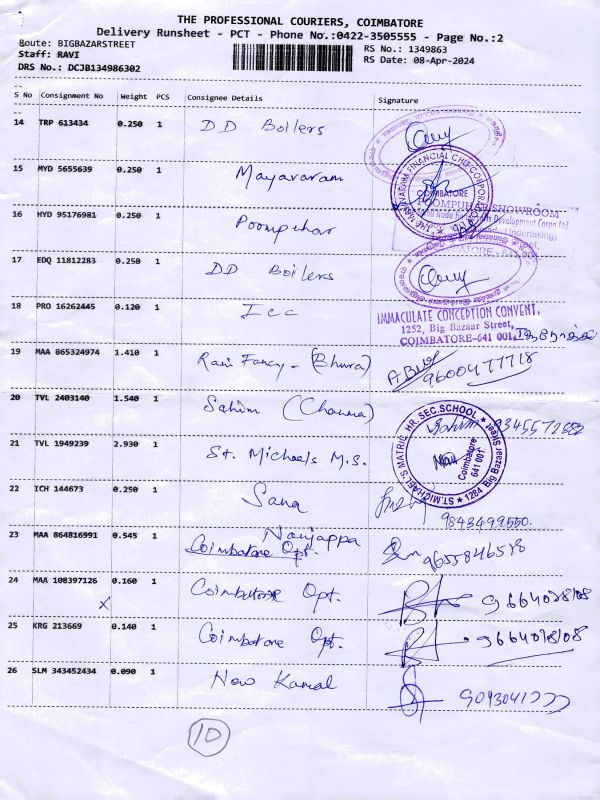 THE PROFESSIONAL COURIERS, COIMBATORE
Delivery Runsheet - PCT - Phone No.:0422-3505555 - Page No.:2
Route: BIGBAZARSTREET RS No.: 1349863
Staff: RAVI RS Date: 08-Apr-2024
DRS No.: DCJB134986302
S No Consignment No Weight PCS Consignee Details Signature
14 TRP 613434 0.250 1 DD Boilers
15 MYD 5655639 0.250 1 Mayavaram
THE MAYAVARAM FINANCIAL CHIT CORPORATION
COIMBATORE
16 HYD 95176981 0.250 1 Poompuhar
POOMPUHAR SHOWROOM
Development Corpn Ltd.
Undertaking)
17 EDQ 11812283 0.250 1 DD Boilers
18 PRO 16262445 0.120 1 Icc
IMMACULATE CONCEPTION CONVENT,
1252, Big Bazaar Street,
COIMBATORE-641 001.
19 MAA 865324974 1.410 1 Rani Fancy - (Bhura) 9600477718
20 TVL 2403140 1.540 1 Sahim (Channa) Sahim
21 TVL 1949239 2.930 1 St. Michaels M.S.
ST.MICHAEL'S MATRIC. HR. SEC.SCHOOL
1284 Big Bazaar Street
Coimbatore
641 001
22 ICH 144673 0.250 1 Sana
9843499550.
23 MAA 864816991 0.545 1 Nanjappa
Coimbatore Opt. 9655846518
24 MAA 108397126 0.160 1 Coimbatore Opt. 9664078108
x
25 KRG 213669 0.140 1 Coimbatore Opt. 9664078108
26 SLM 343452434 0.090 1 New Kamal
10